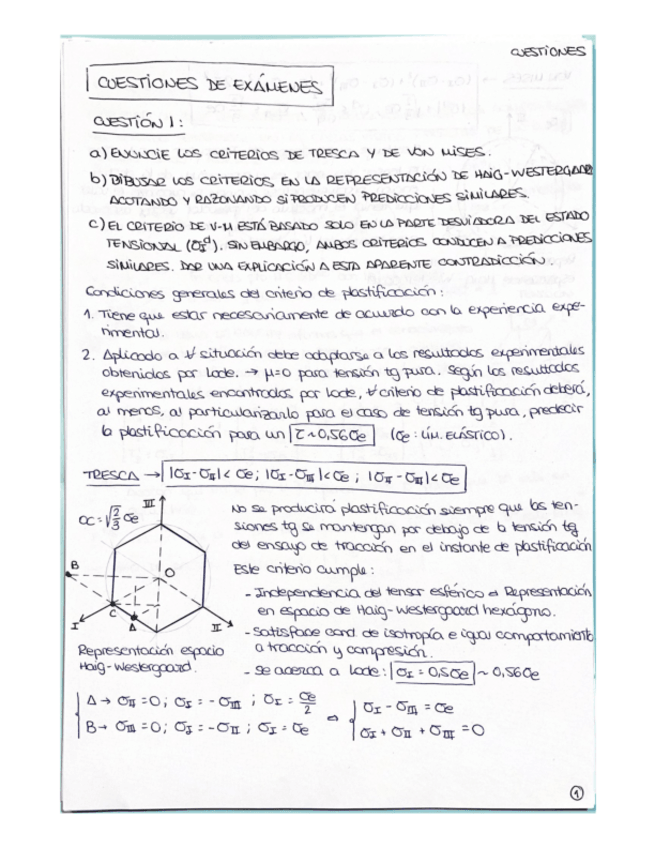 CUESTIONES
CUESTIONES DE EXÁMENES
CUESTIÓN 1:
a) ENUNCIE LOS CRITERIOS DE TRESCA Y DE VON MISES.
b) DIBUJAR LOS CRITERIOS, EN LA REPRESENTACIÓN DE HAIG-WESTERGAARD
ACOTANDO Y RAZONANDO SI PRODUCEN PREDICCIONES SIMILARES.
c) EL CRITERIO DE V-M ESTÁ BASADO SOLO EN LA PARTE DESVIADORA DEL ESTADO
TENSIONAL (σI^d). SIN EMBARGO, AMBOS CRITERIOS CONDUCEN A PREDICCIONES
SIMILARES. DAR UNA EXPLICACIÓN A ESTA APARENTE CONTRADICCIÓN.
Condiciones generales del criterio de plastificación:
1. Tiene que estar necesariamente de acuerdo con la experiencia expe-
rimental.
2. Aplicado a ∀ situación debe adaptarse a los resultados experimentales
obtenidos por Lode. → μ=0 para tensión tg pura. Según los resultados
experimentales encontrados por Lode, ∀ criterio de plastificación deberá,
al menos, al particularizarlo para el caso de tensión tg pura, predecir
la plastificación para un τ~0,56σe (σe: lím. elástico).
TRESCA → |σI-σII|<σe; |σI-σIII|<σe; |σII-σIII|<σe
OC=√(2/3) σe
III
B
O
C
A
I
II
Representación espacio
Haig-Westergaard.
No se producirá plastificación siempre que las ten-
siones tg se mantengan por debajo de la tensión tg
del ensayo de tracción en el instante de plastificación
Este criterio cumple:
- Independencia del tensor esférico Representación
en espacio de Haig-Westergaard hexágono.
- Satisface cond. de isotropía e igual comportamiento
a tracción y compresión.
- Se acerca a Lode: σI=0,5σe ~ 0,56σe
A → σII=0; σI=-σIII; σI=σe/2
B → σIII=0; σI=-σII; σI=σe
σI-σIII=σe
σI+σII+σIII=0
1